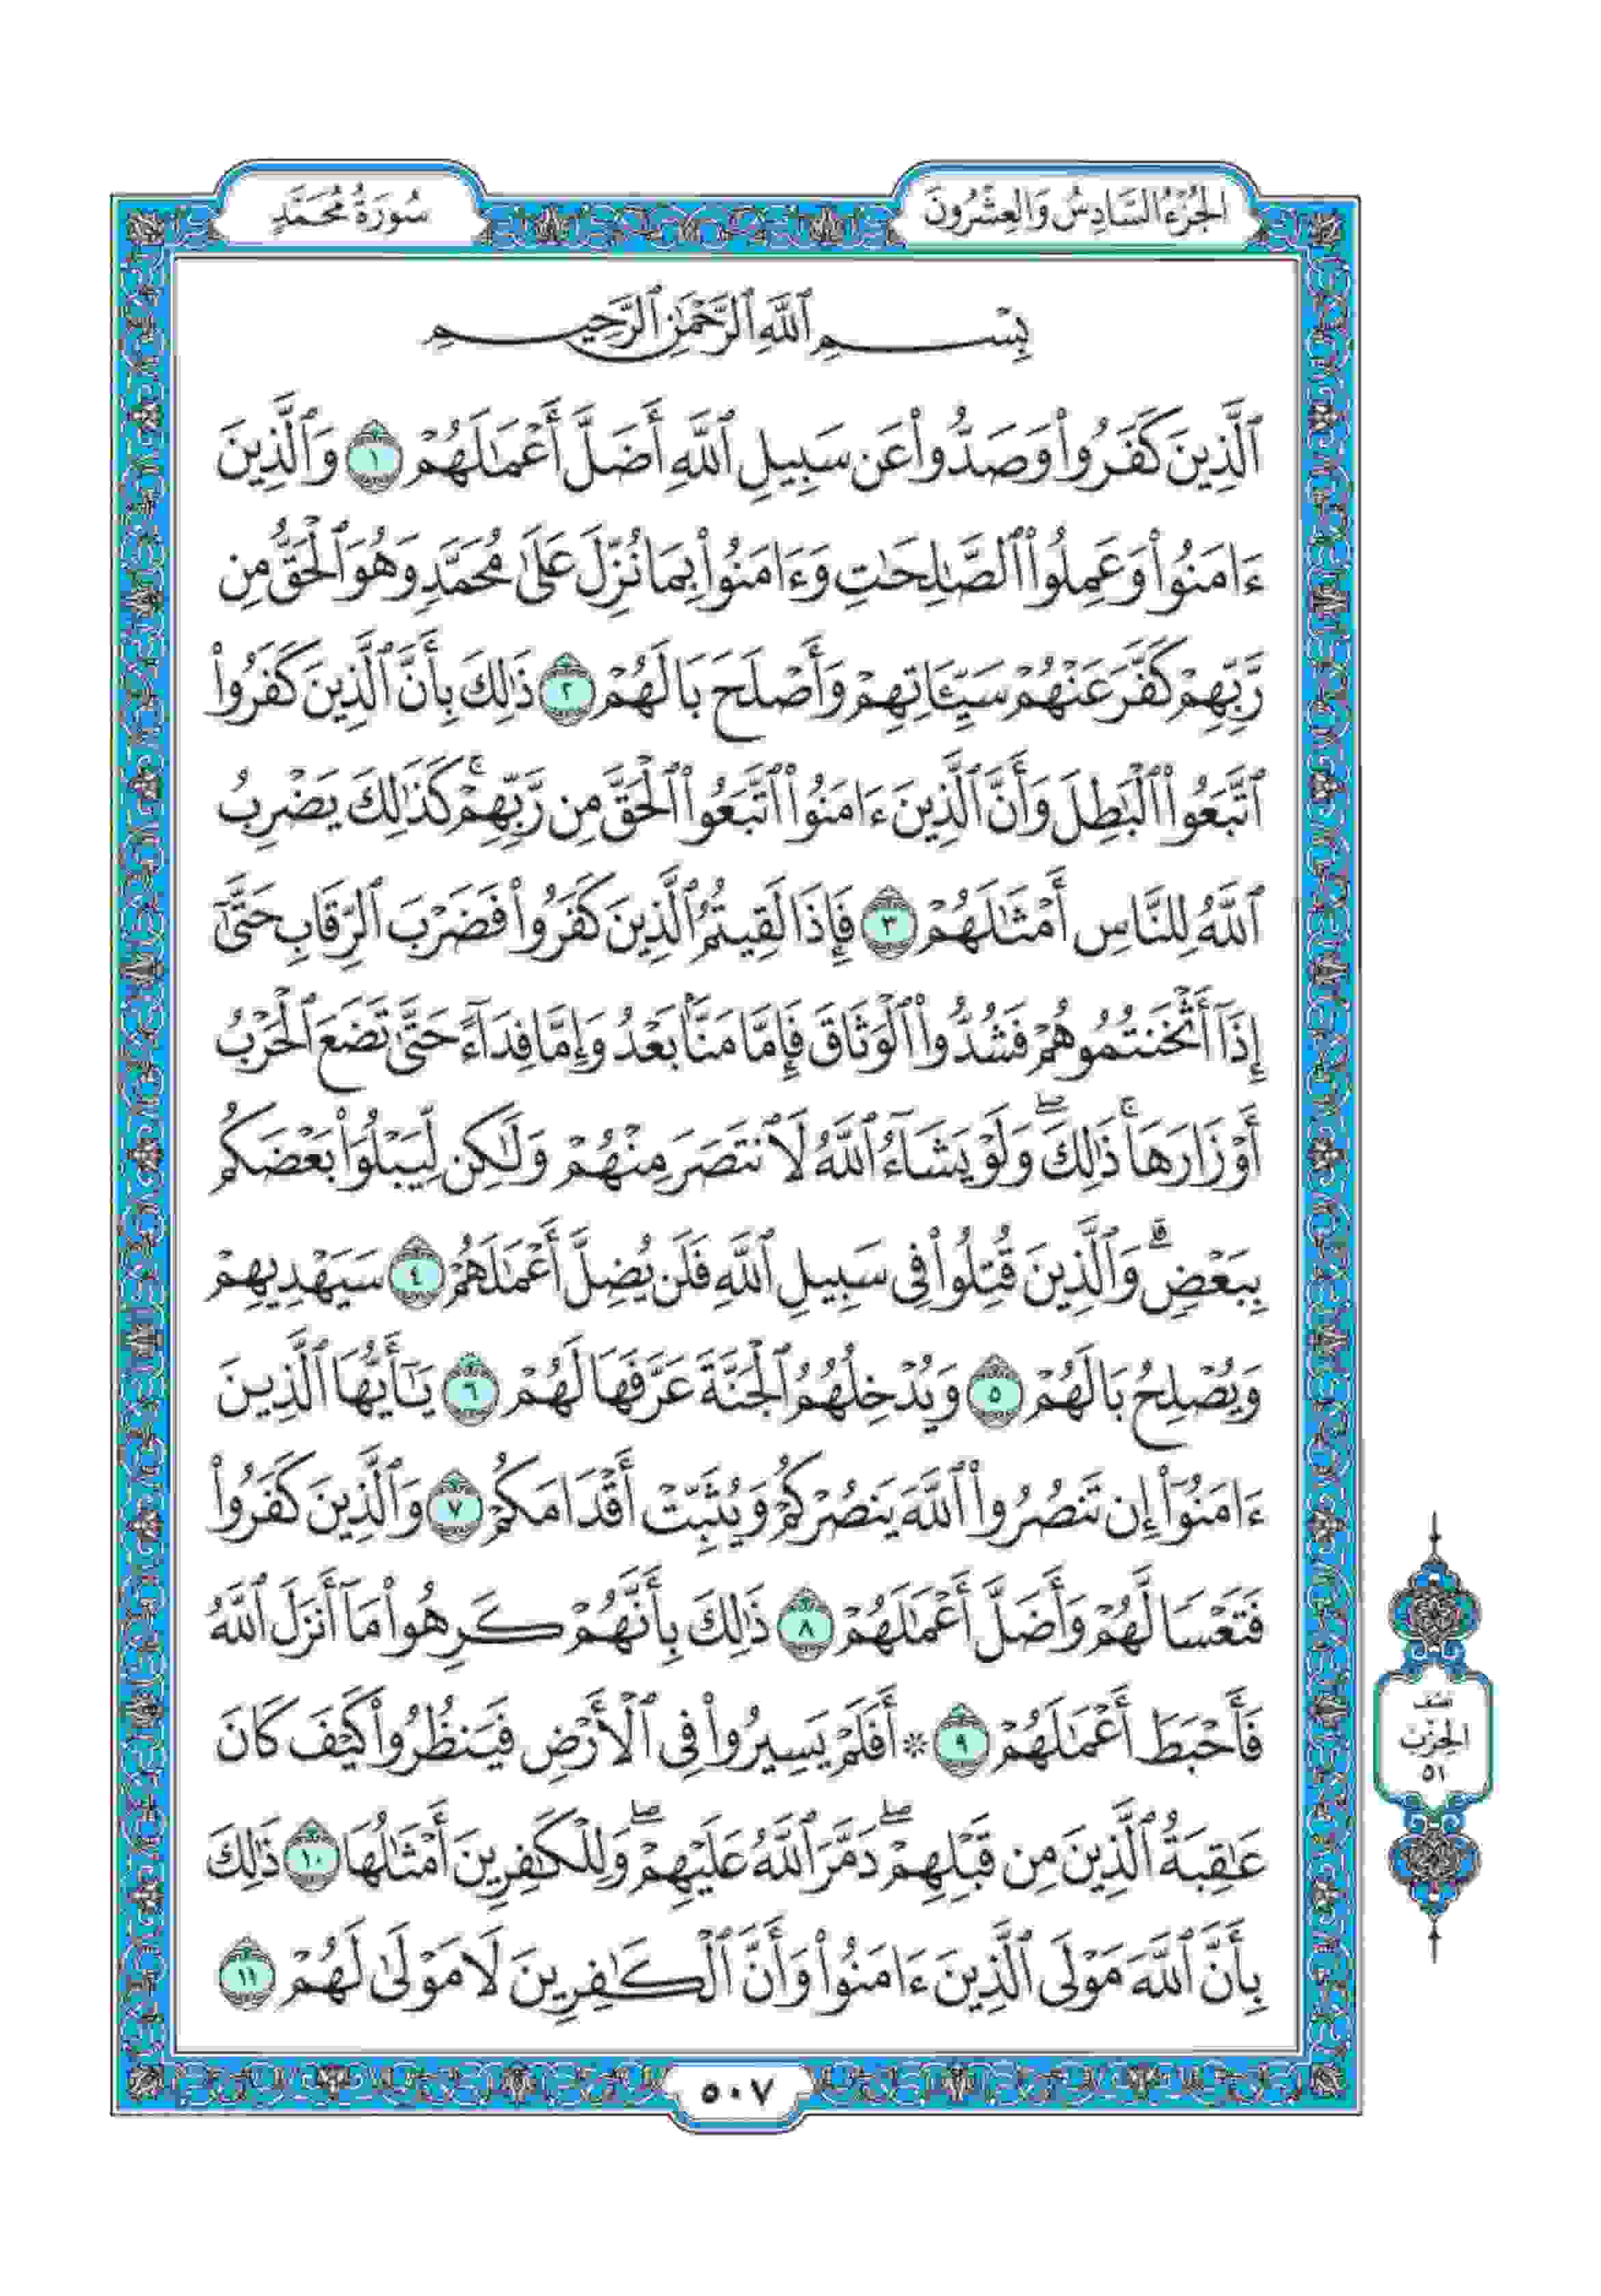 الجُزْءُ السَّادِسُ وَالعِشْرُونَ
سُورَةُ مُحَمَّدٍ
بِسْمِ ٱللَّهِ ٱلرَّحْمَٰنِ ٱلرَّحِيمِ
ٱلَّذِينَ كَفَرُوا۟ وَصَدُّوا۟ عَن سَبِيلِ ٱللَّهِ أَضَلَّ أَعْمَٰلَهُمْ ١ وَٱلَّذِينَ
ءَامَنُوا۟ وَعَمِلُوا۟ ٱلصَّٰلِحَٰتِ وَءَامَنُوا۟ بِمَا نُزِّلَ عَلَىٰ مُحَمَّدٍ وَهُوَ ٱلْحَقُّ مِن
رَّبِّهِمْ كَفَّرَ عَنْهُمْ سَيِّـَٔاتِهِمْ وَأَصْلَحَ بَالَهُمْ ٢ ذَٰلِكَ بِأَنَّ ٱلَّذِينَ كَفَرُوا۟
ٱتَّبَعُوا۟ ٱلْبَٰطِلَ وَأَنَّ ٱلَّذِينَ ءَامَنُوا۟ ٱتَّبَعُوا۟ ٱلْحَقَّ مِن رَّبِّهِمْ ۚ كَذَٰلِكَ يَضْرِبُ
ٱللَّهُ لِلنَّاسِ أَمْثَٰلَهُمْ ٣ فَإِذَا لَقِيتُمُ ٱلَّذِينَ كَفَرُوا۟ فَضَرْبَ ٱلرِّقَابِ حَتَّىٰٓ
إِذَآ أَثْخَنتُمُوهُمْ فَشُدُّوا۟ ٱلْوَثَاقَ فَإِمَّا مَنًّۢا بَعْدُ وَإِمَّا فِدَآءً حَتَّىٰ تَضَعَ ٱلْحَرْبُ
أَوْزَارَهَا ۚ ذَٰلِكَ ۖ وَلَوْ يَشَآءُ ٱللَّهُ لَٱنتَصَرَ مِنْهُمْ وَلَٰكِن لِّيَبْلُوَا۟ بَعْضَكُم
بِبَعْضٍ ۗ وَٱلَّذِينَ قُتِلُوا۟ فِى سَبِيلِ ٱللَّهِ فَلَن يُضِلَّ أَعْمَٰلَهُمْ ٤ سَيَهْدِيهِمْ
وَيُصْلِحُ بَالَهُمْ ٥ وَيُدْخِلُهُمُ ٱلْجَنَّةَ عَرَّفَهَا لَهُمْ ٦ يَٰٓأَيُّهَا ٱلَّذِينَ
ءَامَنُوٓا۟ إِن تَنصُرُوا۟ ٱللَّهَ يَنصُرْكُمْ وَيُثَبِّتْ أَقْدَامَكُمْ ٧ وَٱلَّذِينَ كَفَرُوا۟
فَتَعْسًا لَّهُمْ وَأَضَلَّ أَعْمَٰلَهُمْ ٨ ذَٰلِكَ بِأَنَّهُمْ كَرِهُوا۟ مَآ أَنزَلَ ٱللَّهُ
فَأَحْبَطَ أَعْمَٰلَهُمْ ٩ ۞ أَفَلَمْ يَسِيرُوا۟ فِى ٱلْأَرْضِ فَيَنظُرُوا۟ كَيْفَ كَانَ
عَٰقِبَةُ ٱلَّذِينَ مِن قَبْلِهِمْ ۖ دَمَّرَ ٱللَّهُ عَلَيْهِمْ ۖ وَلِلْكَٰفِرِينَ أَمْثَٰلُهَا ١٠ ذَٰلِكَ
بِأَنَّ ٱللَّهَ مَوْلَى ٱلَّذِينَ ءَامَنُوا۟ وَأَنَّ ٱلْكَٰفِرِينَ لَا مَوْلَىٰ لَهُمْ ١١
نصف
الحِزْب
٥١
٥٠٧